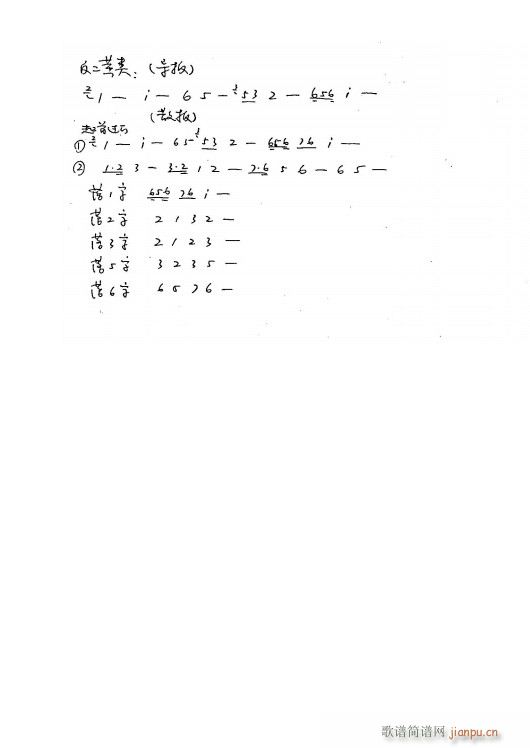 反二黄类：(导板)
2 1 — i — 6 5 — 5 3 2 — 6 5 6 i —
(散板)
① 2 1 — i — 6 5 — 5 3 2 — 6 5 6 7 6 i —
② 1·2 3 — 3·2 1 2 — 7·6 5 6 — 6 5 —
落1字 6 5 6 7 6 i —
落2字 2 1 3 2 —
落3字 2 1 2 3 —
落5字 3 2 3 5 —
落6字 6 5 7 6 —
歌谱简谱网 jianpu.cn